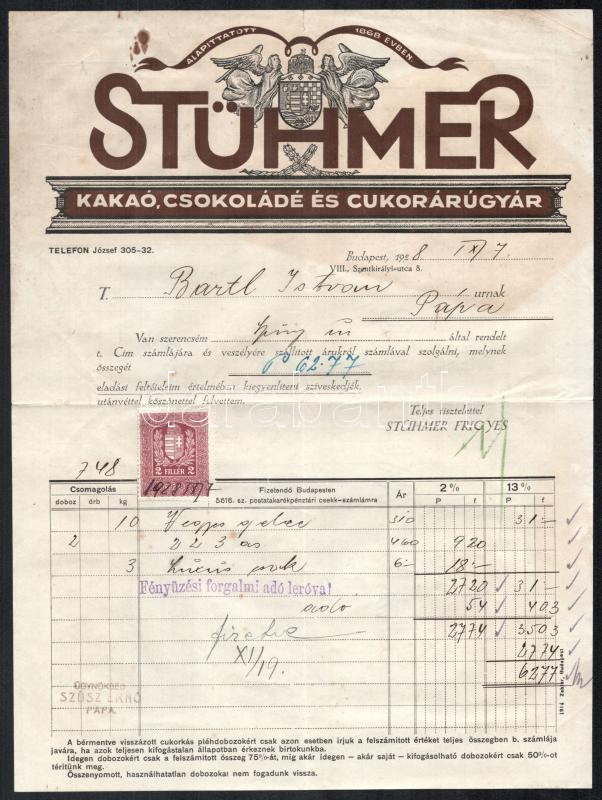 ALAPITTATOTT 1868 ÉVBEN.
STÜHMER
KAKAÓ, CSOKOLÁDÉ ÉS CUKORÁRÚGYÁR
TELEFON József 305-32.
Budapest, 1928 IX/7.
VIII., Szentkirályi-utca 8.
T. Bartl Istvan urnak
Pápa
Van szerencsém által rendelt
t. Cím számlájára és veszélyére szállított árukról számlával szolgálni, melynek
összegét P 62.77
eladási feltételeim értelmében kiegyenlíteni sziveskedjék.
utánvéttel köszönettel felvettem.
Teljes tisztelettel
STÜHMER FRIGYES
748
2 FILLÉR 2
1928 IX/7
Csomagolás
doboz drb kg
Fizetendő Budapesten
5616. sz. postatakarékpénztári csekk-számlámra
Ár
2% 13%
P f P f
10 Vegyes 310 31.-
2 223 as 460 9 20
3 6.- 18.-
Fényüzési forgalmi adó leróva!
27 20 31.-
adó 54 4 03
fizetve 27 74 35 03
XI/19. 27 74
62 77
ÜGYNÖKSÉG
SZÜSZ ERNŐ
PÁPA.
1914 Zakár, Budapest
A bérmentve visszázott cukorkás pléhdobozokért csak azon esetben irjuk a felszámított értéket teljes összegben b. számlája
javára, ha azok teljesen kifogástalan állapotban érkeznek birtokunkba.
Idegen dobozokért csak a felszámított összeg 75%-át, mig akár idegen - akár saját - kifogásolható dobozokért csak 50%-ot
térítünk meg.
Összenyomott, használhatatlan dobozokat nem fogadunk vissza.